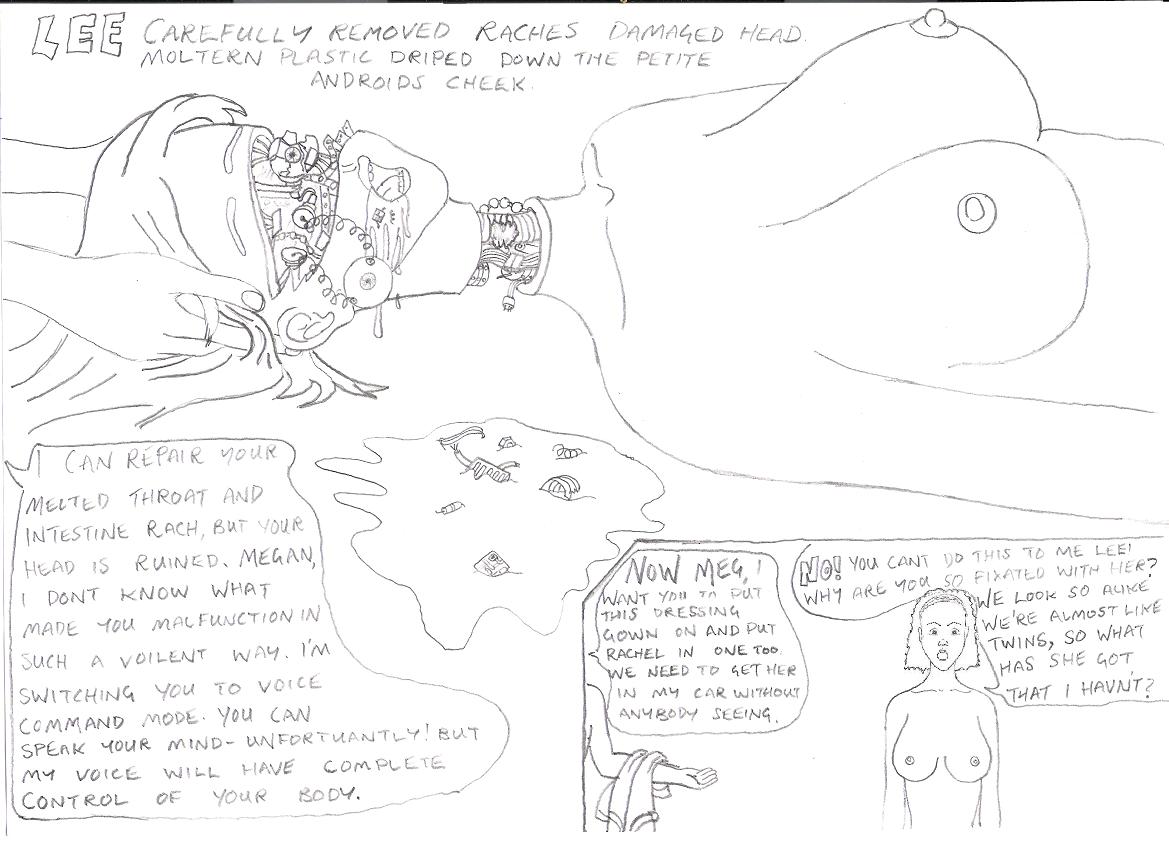 LEE CAREFULLY REMOVED RACHES DAMAGED HEAD.
MOLTERN PLASTIC DRIPED DOWN THE PETITE
ANDROIDS CHEEK.
I CAN REPAIR YOUR
MELTED THROAT AND
INTESTINE RACH, BUT YOUR
HEAD IS RUINED. MEGAN,
I DONT KNOW WHAT
MADE YOU MALFUNCTION IN
SUCH A VOILENT WAY. I'M
SWITCHING YOU TO VOICE
COMMAND MODE. YOU CAN
SPEAK YOUR MIND - UNFORTUANTLY! BUT
MY VOICE WILL HAVE COMPLETE
CONTROL OF YOUR BODY.
NOW MEG, I
WANT YOU TO PUT
THIS DRESSING
GOWN ON AND PUT
RACHEL IN ONE TOO.
WE NEED TO GET HER
IN MY CAR WITHOUT
ANYBODY SEEING.
NO! YOU CANT DO THIS TO ME LEE!
WHY ARE YOU SO FIXATED WITH HER?
WE LOOK SO ALIKE
WE'RE ALMOST LIKE
TWINS, SO WHAT
HAS SHE GOT
THAT I HAVN'T?